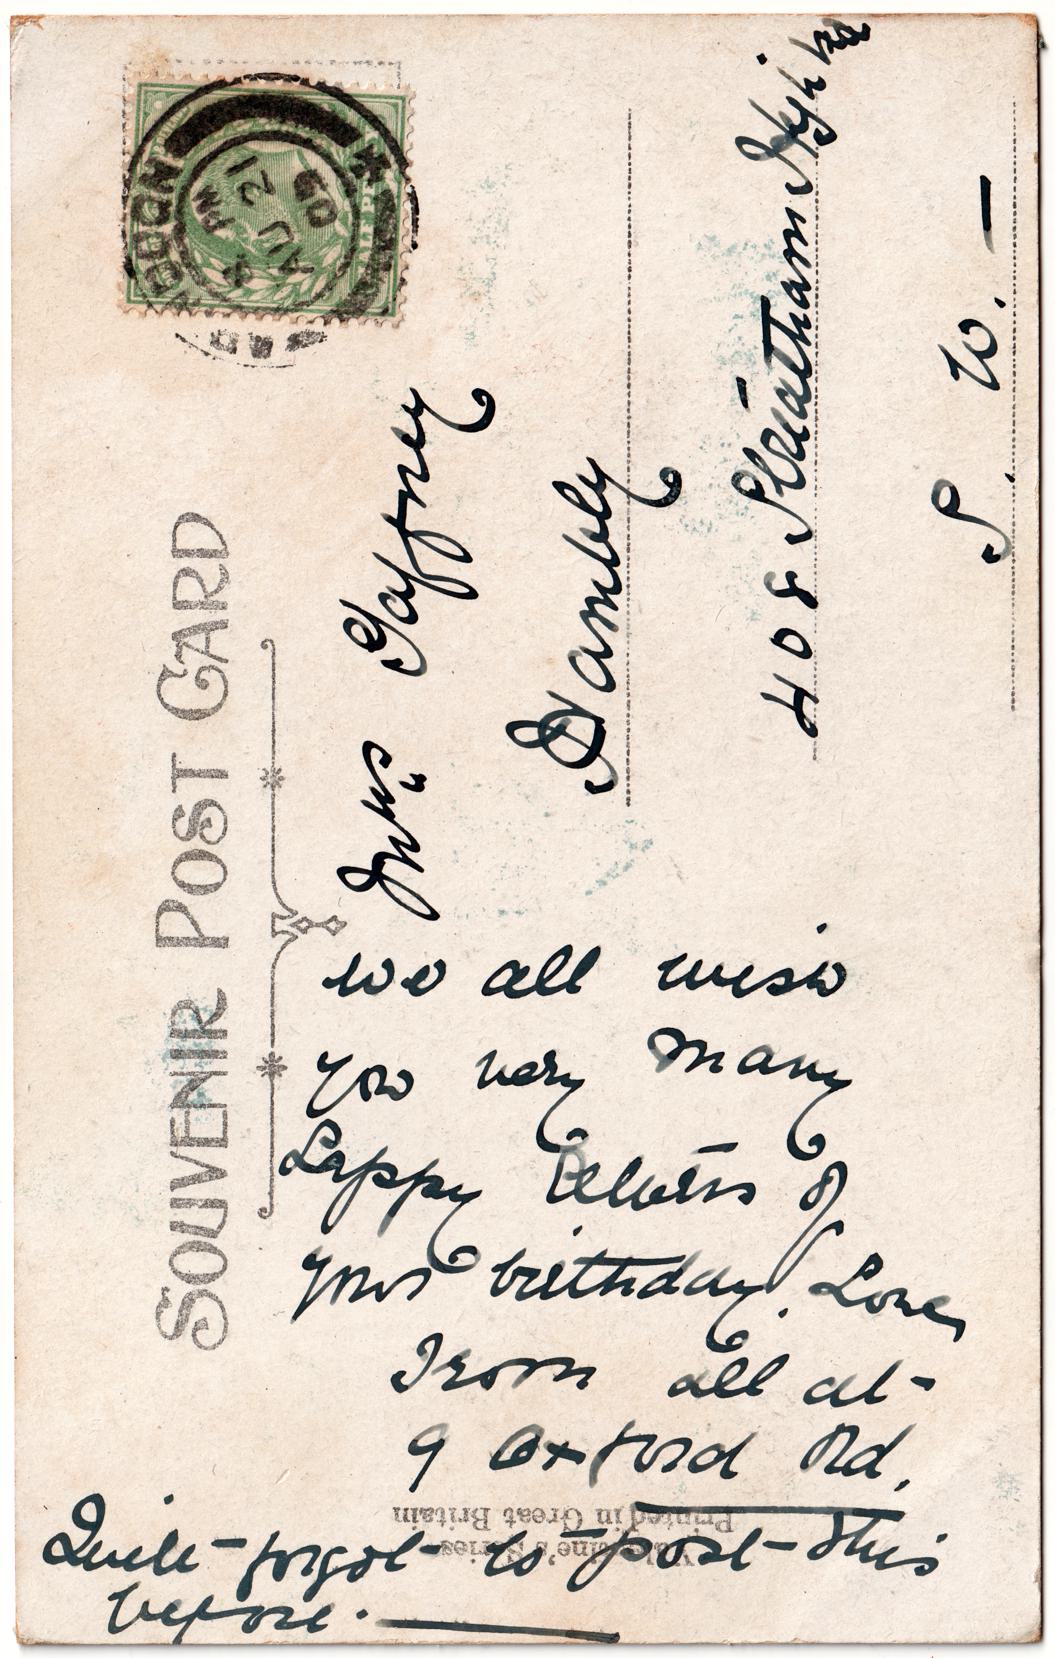 SOUVENIR POST CARD
LONDON
4. PM
AU 21
09
Mrs Gafney
Hambly
408 Streatham High Rd
S. W. —
we all wish
you very many
Happy Returns of
your birthday. Love
from all at
9 Oxford Rd.
Quite forgot to post this
before. —
Valentine's Series
Printed in Great Britain